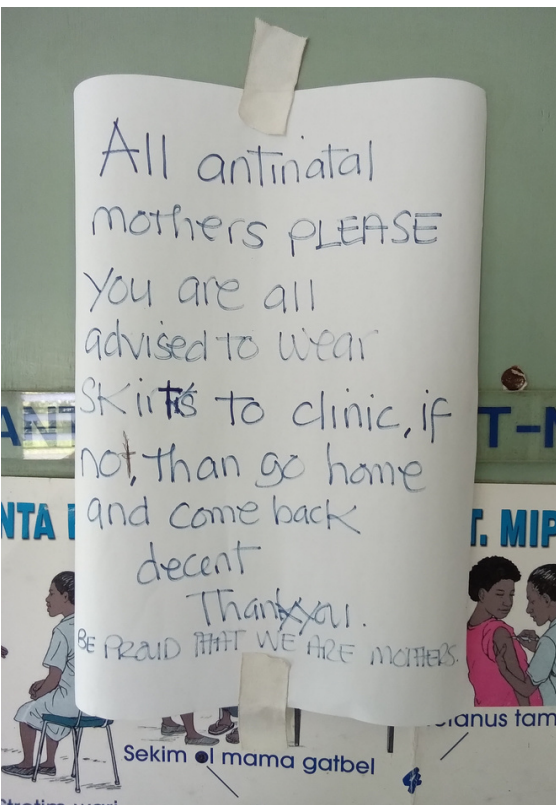 All antinatal
mothers PLEASE
You are all
advised to wear
Skirts to clinic, if
not, than go home
and come back
decent
Thankyou.
BE PROUD THAT WE ARE MOTHERS.
ANT
T-N
NTA
T. MIP
Sekim ol mama gatbel
etanus tam
4